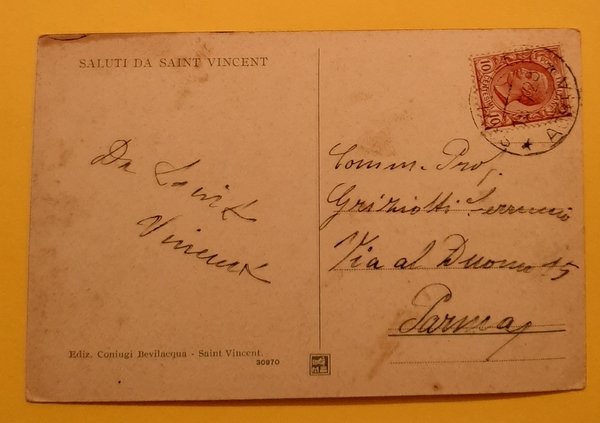 SALUTI DA SAINT VINCENT
Da Saint
Vincent
Ediz. Coniugi Bevilacqua - Saint Vincent.
30970
10
10
Comm. Prof.
Griziotti Ferruccio
Via al Duomo 15
Parma